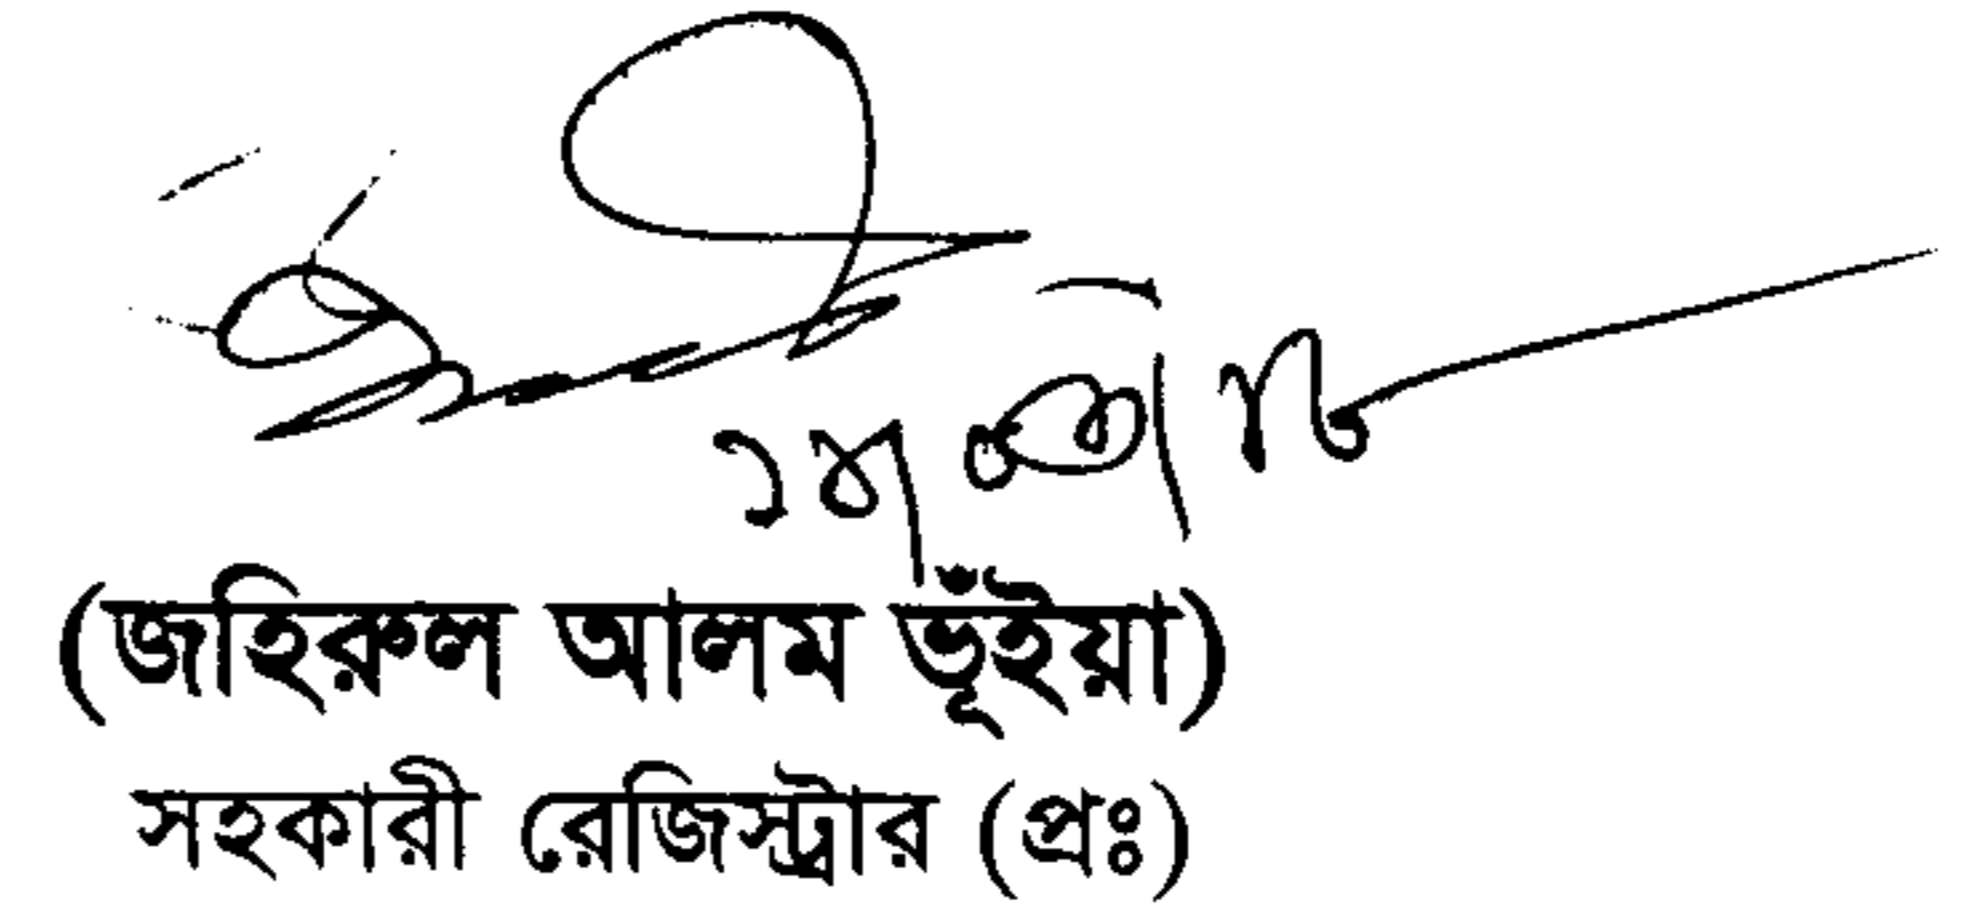 ১ম কোর্ট
(জহিরুল আলম ভূঁইয়া)
সহকারী রেজিস্ট্রার (প্রঃ)